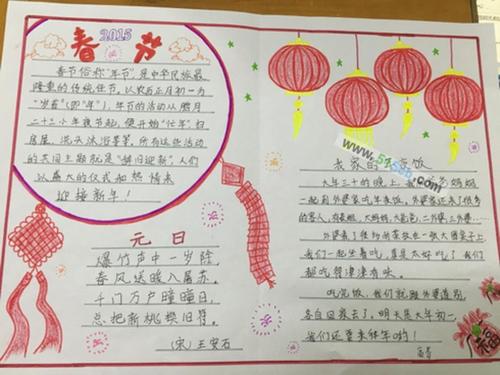 2015
春节
春节俗称"年节",是中华民族最
隆重的传统佳节。从农历正月初一为
"岁首"(即"年"),年的活动从腊月
二十三小年夜节起,便开始"忙年":扫
房屋、洗头沐浴等等,所有这些活动
的共同主题就是"辞旧迎新"。人们
以盛大的仪式和热情来
迎接新年!
元日
爆竹声中一岁除,
春风送暖入屠苏。
千门万户曈曈日,
总把新桃换旧符。
(宋)王安石
我家的 饭
大年三十的晚上,我 爸妈妈
一起到外婆家吃年夜饭,外婆家还来了很多
的客人,有表姐、大姨妈、大爸爸、二外婆、三外婆……
外婆煮了
我们一起坐着吃,真是太好吃了!我们
都吃得津津有味。
吃完饭,我们就跟外婆道别,
各自回家去了。明天是大年初一,
我们还要来拜年哟!
福
www.5455b.com